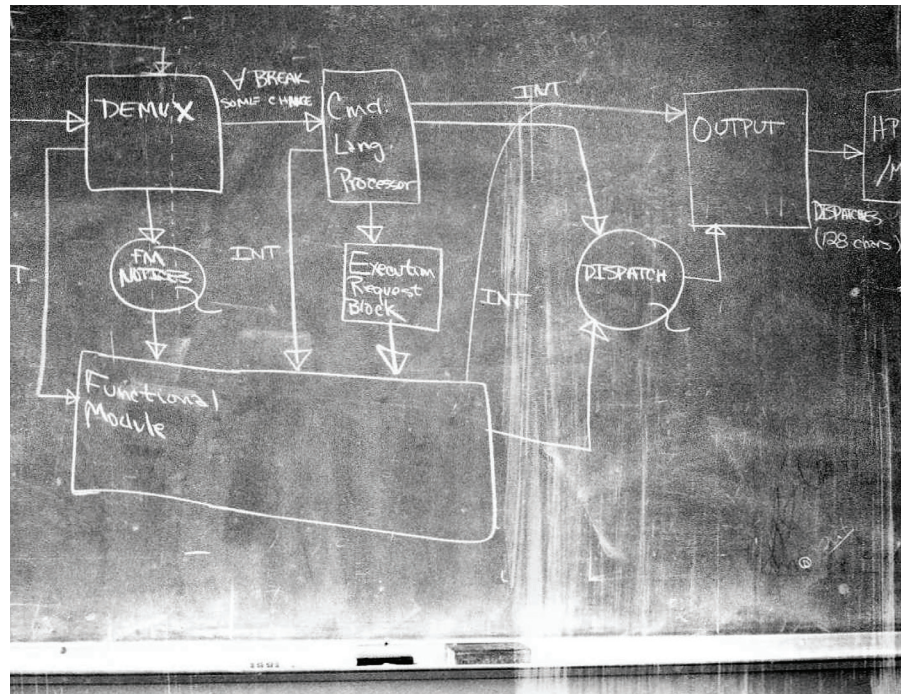 DEMUX
∀ BREAK
SOME CHANGE
Cmd.
Lang.
Processor
INT
OUTPUT
HP
/M
DISPATCHES
(128 chars)
T
FM
NOTICES
INT
Execution
Request
Block
INT
DISPATCH
Functional
Module